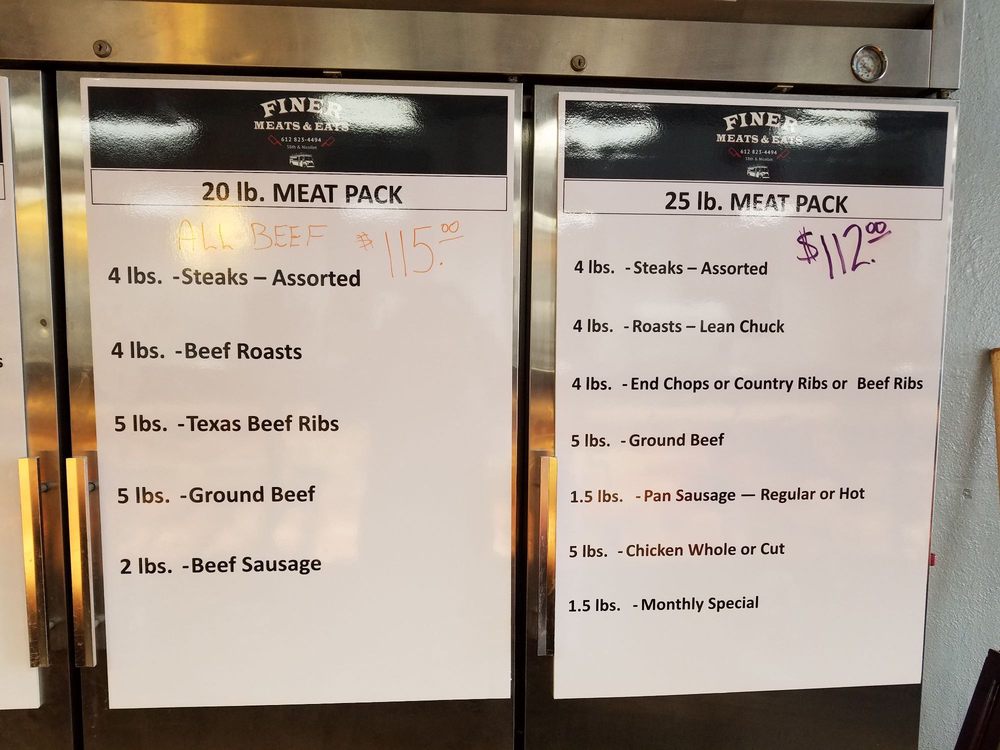 FINER
MEATS & EATS
612 823-4494
38th & Nicollet
20 lb. MEAT PACK
ALL BEEF $115.00
4 lbs. -Steaks – Assorted
4 lbs. -Beef Roasts
5 lbs. -Texas Beef Ribs
5 lbs. -Ground Beef
2 lbs. -Beef Sausage
FINER
MEATS & EATS
612 823-4494
38th & Nicollet
25 lb. MEAT PACK
$112.00
4 lbs. - Steaks – Assorted
4 lbs. - Roasts – Lean Chuck
4 lbs. - End Chops or Country Ribs or Beef Ribs
5 lbs. - Ground Beef
1.5 lbs. - Pan Sausage — Regular or Hot
5 lbs. - Chicken Whole or Cut
1.5 lbs. - Monthly Special